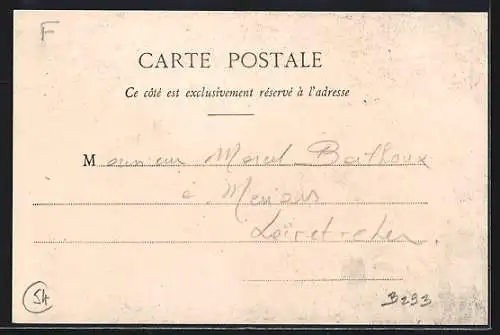 F
CARTE POSTALE
Ce côté est exclusivement réservé à l'adresse
Monsieur Marcel Berthoux
à
Loir et cher.
54
B293